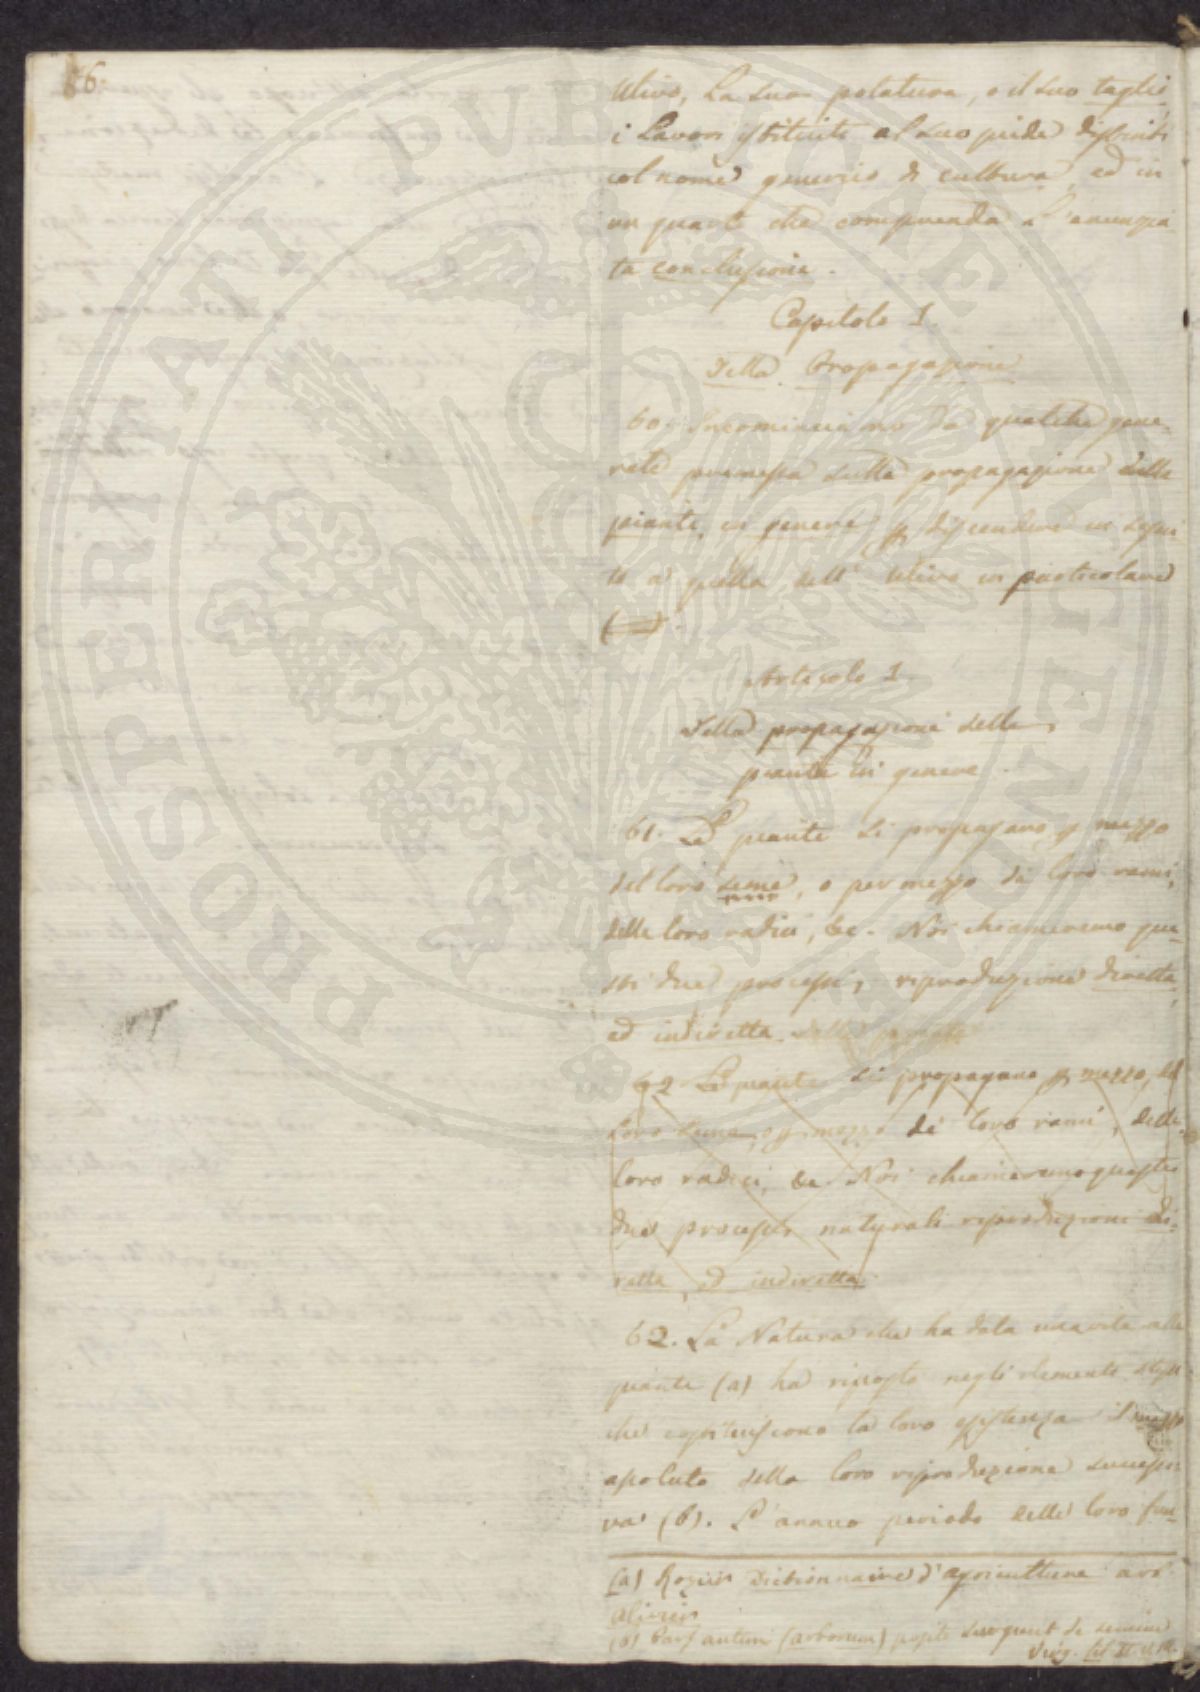 86.
Ulivo, La sua potatura, o il suo taglio
i Lavori istituiti al suo piede distinti
col nome generico di cultura, ed in
un quarto che comprenda l'annunzia
ta conclusione.
Capitolo I
Della Propagazione
60. Incominciamo da qualche gene-
rale premessa sulla propagazione delle
piante in genere p discendere in segui
to a quella dell' Ulivo in particolare
Articolo I.
Della propagazione delle
piante in genere.
61. Le piante si propagano p mezzo
del loro seme, o per mezzo di loro rami,
delle loro radici, &c. Noi chiameremo que-
sti due processi, riproduzione diretta
ed indiretta delle piante
62 Le piante si propagano p mezzo, del
loro seme, o p mezzo di loro rami, delle
loro radici, &c Noi chiameremo questi
due processi naturali riproduzioni di-
retta, ed indiretta.
62. La Natura che ha data una vita alle
piante (a) ha riposto negli elementi stessi
che costituiscono la loro esistenza il mezzo
assoluto della loro riproduzione successi
va (b). L'annuo periodo delle loro fun-
(a) Rozier Dictionnaire d'agriculture art
Olivier
(b) Pars autem (arborum) posito surgunt de semine
Virg. II.
PROSPERITATI PVBLICAE AVGENDAE